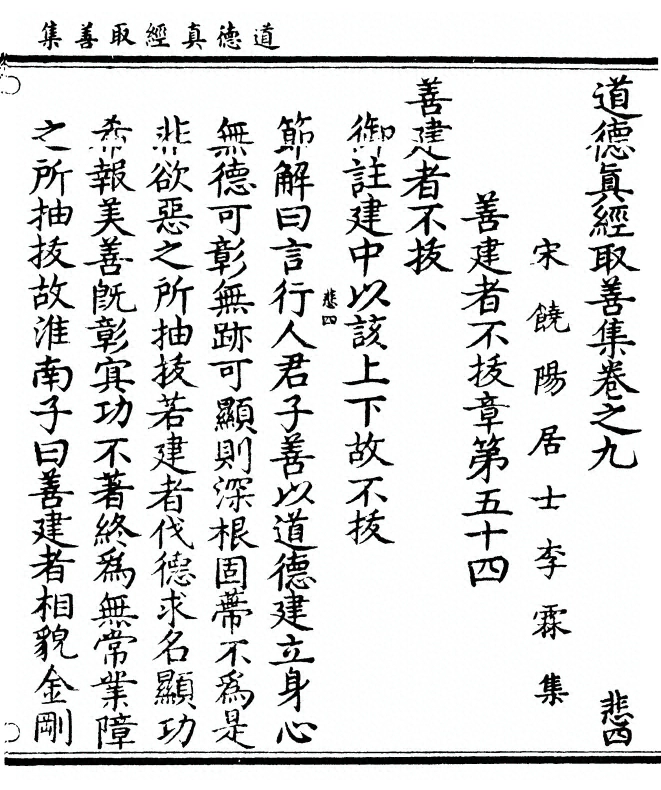 道德真經取善集
道德眞經取善集卷之九 悲四
宋饒陽居士李霖集
善建者不拔章第五十四
善建者不拔
御註建中以該上下故不拔
悲四
節解曰言行人君子善以道德建立身心
無德可彰無跡可顯則深根固蔕不爲是
非欲惡之所抽拔若建者伐德求名顯功
希報美善旣彰寘功不著終爲無常業障
之所抽拔故淮南子曰善建者相貌金剛